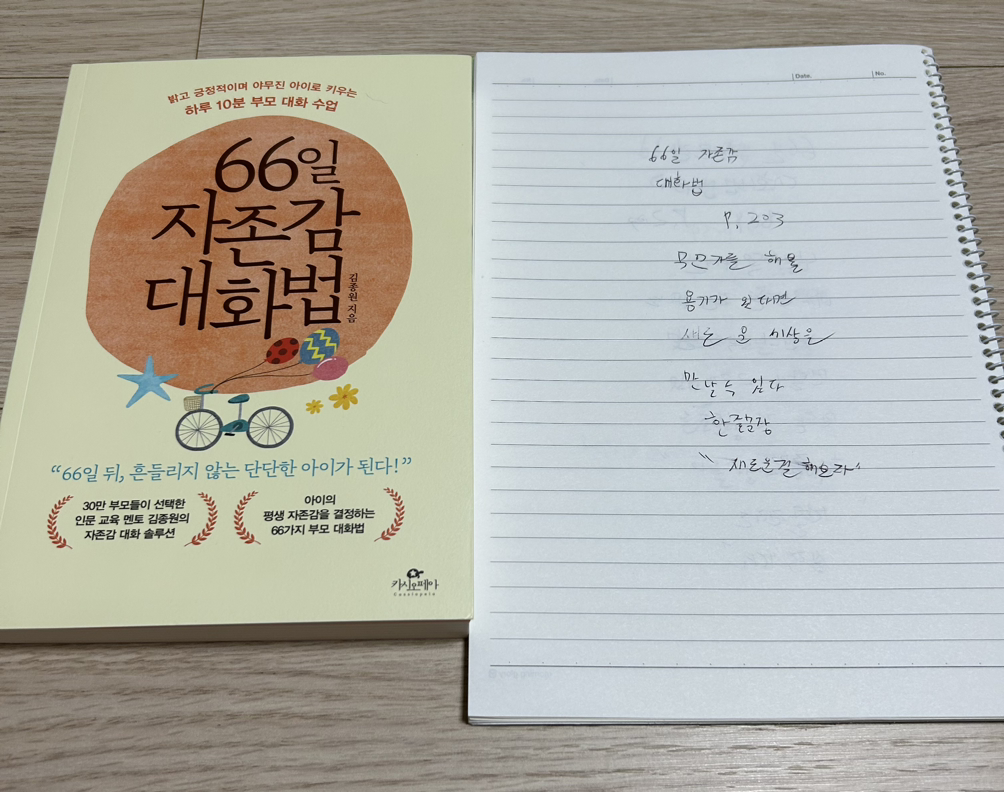 밝고 긍정적이며 야무진 아이로 키우는
하루 10분 부모 대화 수업
66일
자존감
대화법
김종원 지음
“66일 뒤, 흔들리지 않는 단단한 아이가 된다!”
30만 부모들이 선택한
인문 교육 멘토 김종원의
자존감 대화 솔루션
아이의
평생 자존감을 결정하는
66가지 부모 대화법
카시오페아
Cassiopeia
Date.
No.
66일 자존감
대화법
P. 203
무언가를 해볼
용기가 있다면
새로운 세상을
만날 수 있다
한줄문장
"새로운걸 해보라"